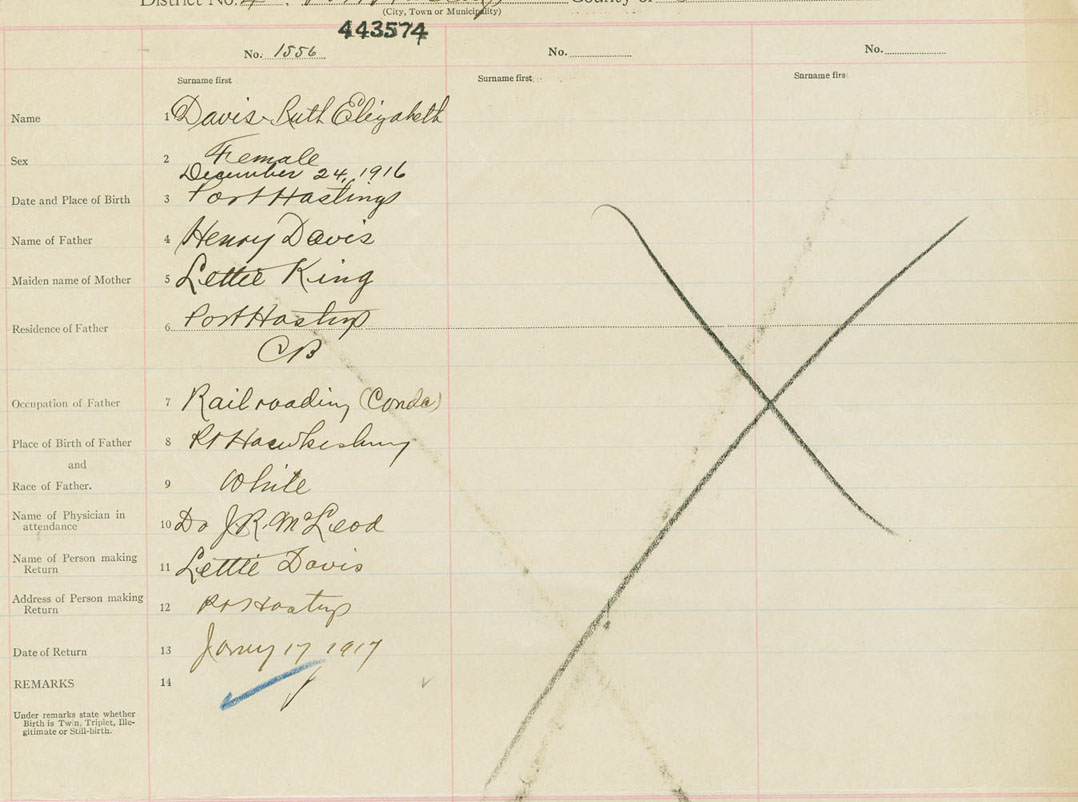 District No. County of
(City, Town or Municipality)
443574
No. 1556 No. No.
Surname first Surname first Surname firs
Name 1 Davis Ruth Elizabeth
Sex 2 Female
December 24, 1916
Date and Place of Birth 3 Port Hastings
Name of Father 4 Henry Davis
Maiden name of Mother 5 Lettie King
Residence of Father 6 Port Hastings
CB
Occupation of Father 7 Railroading (Condc)
Place of Birth of Father 8 Pt Hawkesbury
and
Race of Father. 9 White
Name of Physician in
attendance 10 Dr J.R. McLeod
Name of Person making
Return 11 Lettie Davis
Address of Person making
Return 12 Pt Hastings
Date of Return 13 Janry 17 1917
REMARKS 14
Under remarks state whether
Birth is Twin, Triplet, Ille-
gitimate or Still-birth.